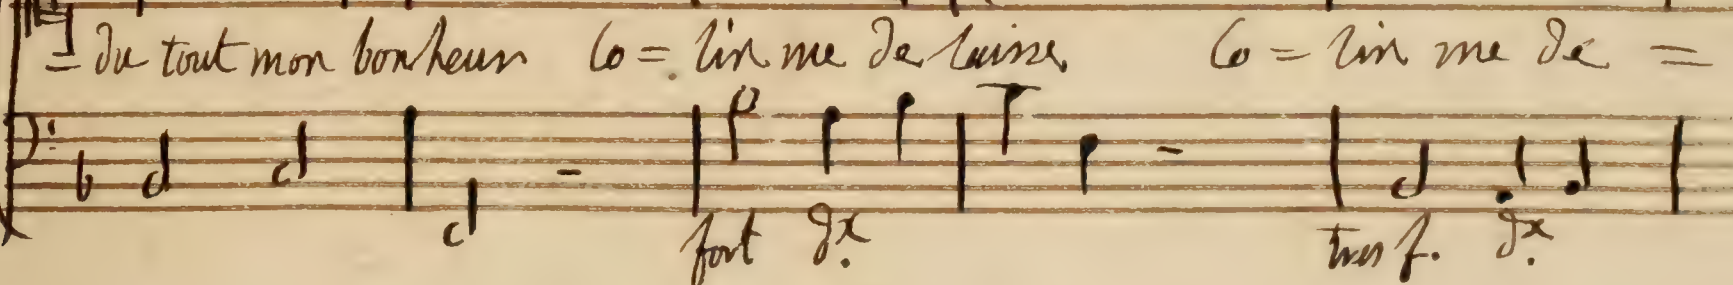 = du tout mon bonheur Co = lin me delaisse Co = lin me de =
fort dx. tres f. dx.